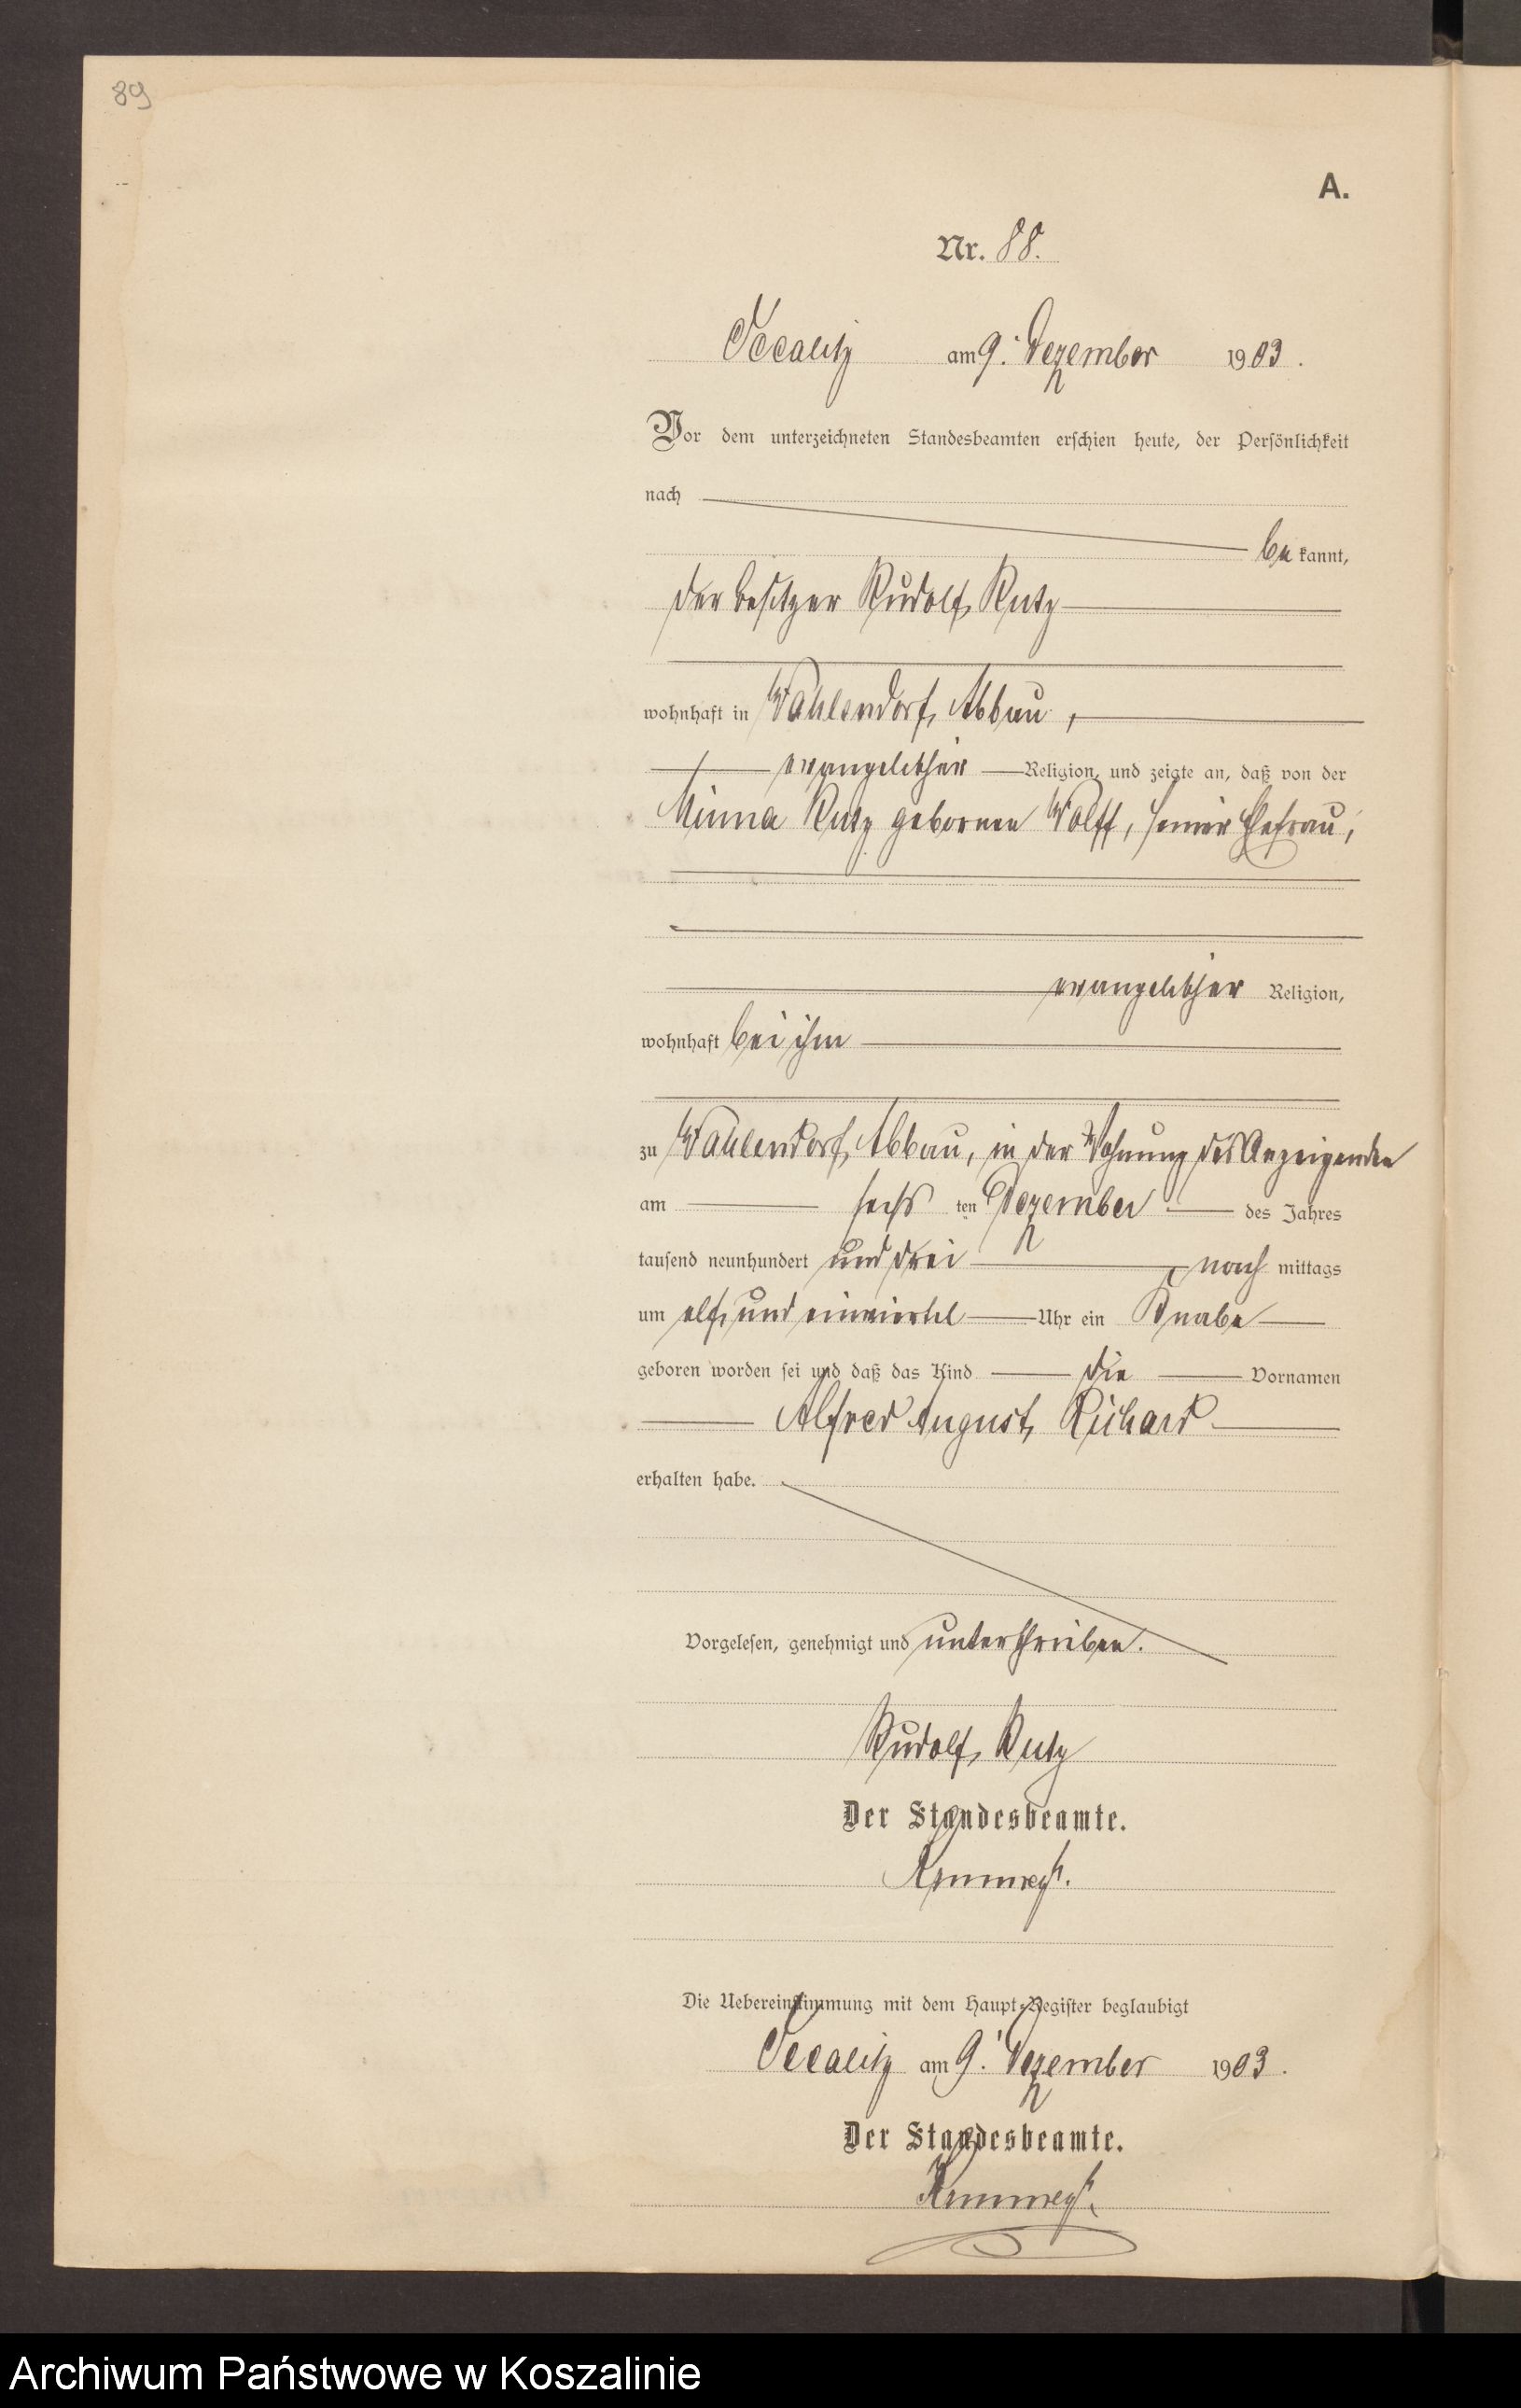 89
A.
Nr. 88.
am 9. Dezember 1903.
Vor dem unterzeichneten Standesbeamten erschien heute, der Persönlichkeit
nach
be kannt,
der Besitzer Rudolf Rutz
wohnhaft in Wahlendorf Abbau,
evangelischer Religion, und zeigte an, daß von der
Minna Rutz geborenen Wolff, seiner Ehefrau,
evangelischer Religion,
wohnhaft bei ihm
zu Wahlendorf Abbau, in der Wohnung des Anzeigenden
am sechs ten Dezember des Jahres
tausend neunhundert und drei nach mittags
um elf und einviertel Uhr ein Knabe
geboren worden sei und daß das Kind die Vornamen
Alfred August Richard
erhalten habe.
Vorgelesen, genehmigt und unterschrieben.
Rudolf Rutz
Der Standesbeamte.
Die Uebereinstimmung mit dem Haupt-Register beglaubigt
am 9. Dezember 1903.
Der Standesbeamte.
Archiwum Państwowe w Koszalinie